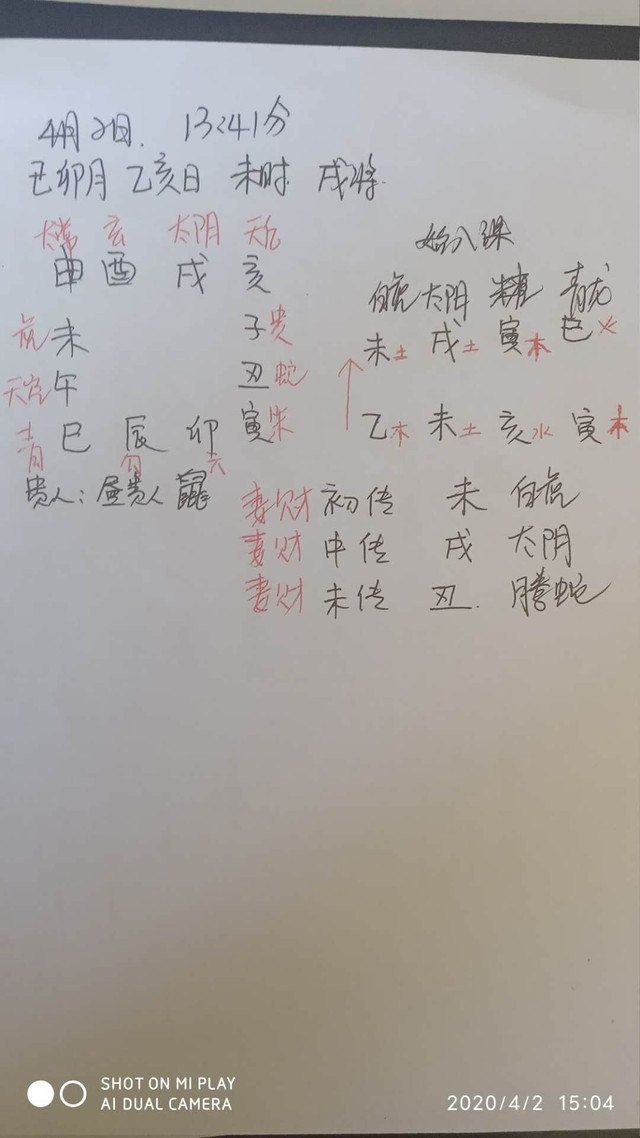 4月2日. 13:41分
己卯月 乙亥日 未时 戌将
太常 玄 太阴 天后
申 酉 戌 亥
始入课
白虎 太阴 青龙
虎 未 子 贵
未土 戌土 寅木 巳火
天空 午 丑 蛇
青 巳 辰 勾 卯 六 寅 朱
乙木 未土 亥水 寅木
贵人: 昼贵人 鼠
妻财 初传 未 白虎
妻财 中传 戌 太阴
妻财 末传 丑. 腾蛇
SHOT ON MI PLAY
AI DUAL CAMERA
2020/4/2 15:04